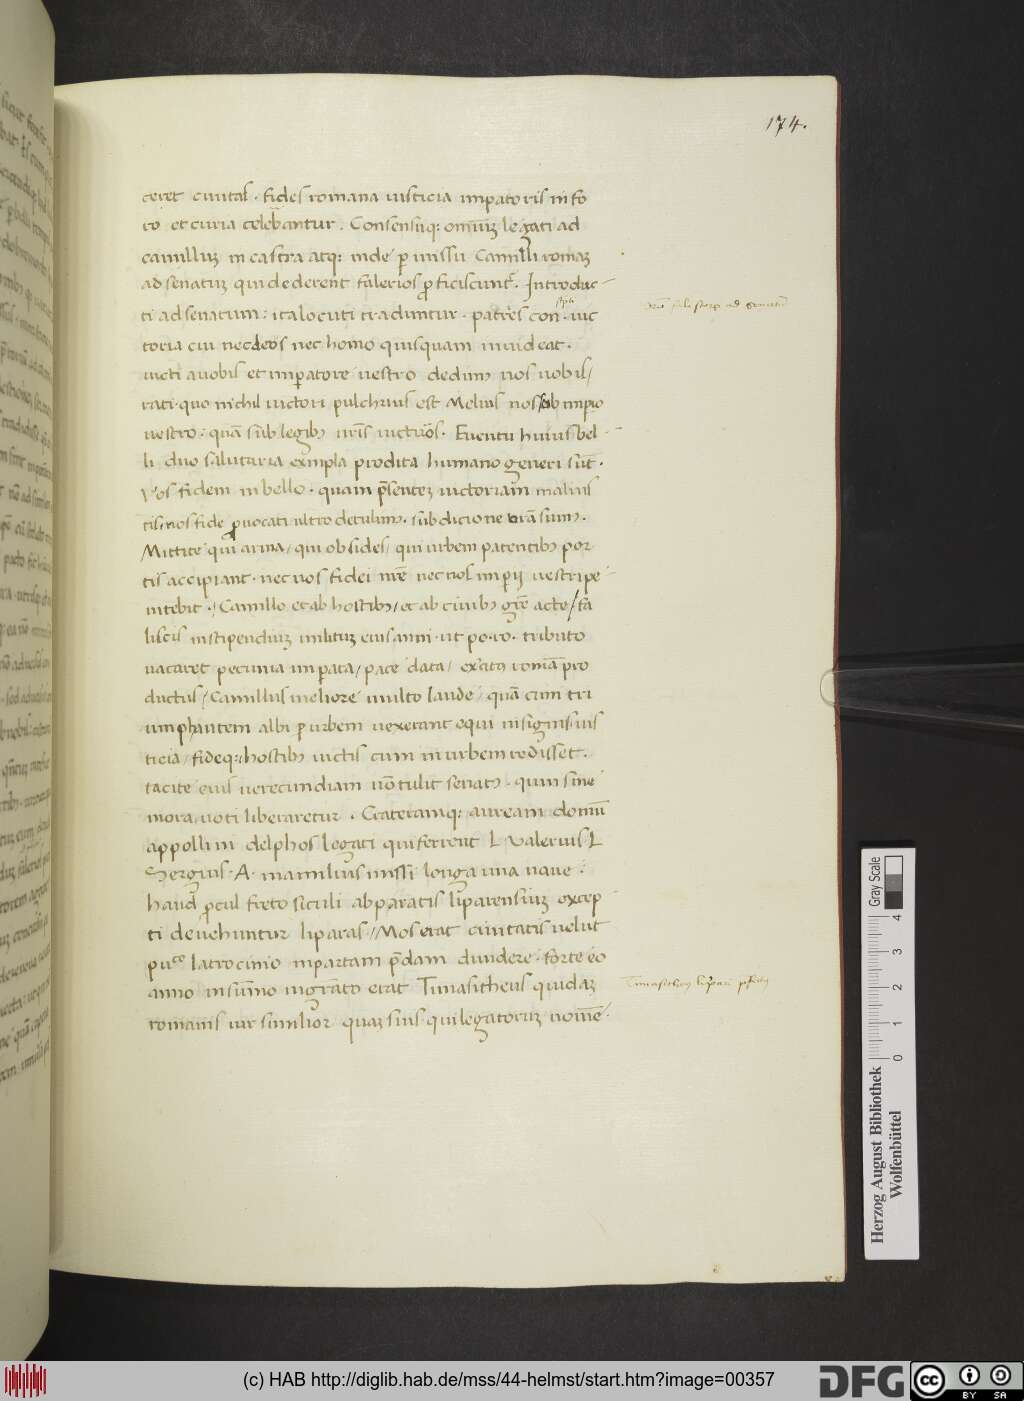 174.
ceret ciuitas. fides romana iusticia impatoris in fo
ro et curia celebrantur. Consensuq: omniũ legati ad
camillũ in castra atq: inde p missu Camilli romã
ad senatũ qui dederent falerios pficiscunt͂. Introduc-
ti ad senatum: ita locuti traduntur. patres con. uic
toria cui nec deos nec homo quisquam inuideat.
uicti a uobis et impatore uestro dedim9 nos uobis/
rati. quo nichil uictori pulchrius est Melius nos sub impio
uestro: quã sub legib9 nr̃is uictuõs. Euentu huius bel-
li duo salutaria exempla prodita humano generi sũt.
Vos fidem in bello. quam p̃sentem uictoriam maluis
tis: nos fide puocati ultro detulim9. sub dicione urã sum9.
Mittite qui arma/ qui obsides/ qui urbem patentib9 por
tis accipiant. nec uos fidei nr̃e nec nos impij uestri pe-
nitebit. Camillo et ab hostib9/ et ab ciuib9 gr̃e acte/ fa
liscis in stipendiũ militũ eius anni. ut po. ro. tributo
uacaret pecunia impata/ pace data/ excit9 romã pro
ductus/ Camillus meliore multo laude/ quã cum tri
umphantem albi p urbem uexerant equi insignis ius
ticia/ fideq: hostib9 uictis cum in urbem redisset.
tacite eius uerecundiam nõ tulit senat9. quin sine
mora uoti liberaretur. Crateramq: auream donũ
appollini delphos legati qui ferrent L valerius. L
Sergius. A. manilius missi longa una naue:
haud pcul freto siculi ab paratis liparensiũ excep
ti deuehuntur liparas/ Mos erat ciuitatis uelut
pu͂co latrocinio in partam p̃dam diuidere. forte eo
anno in sum̃o migrato erat Timasitheus quidã
romanis uir similior quã suis qui legatorũ nomẽ.
Timasitheus lipar
Herzog August Bibliothek
Wolfenbüttel
0 1 2 3 4
Gray Scale
(c) HAB http://diglib.hab.de/mss/44-helmst/start.htm?image=00357
DFG
cc BY SA